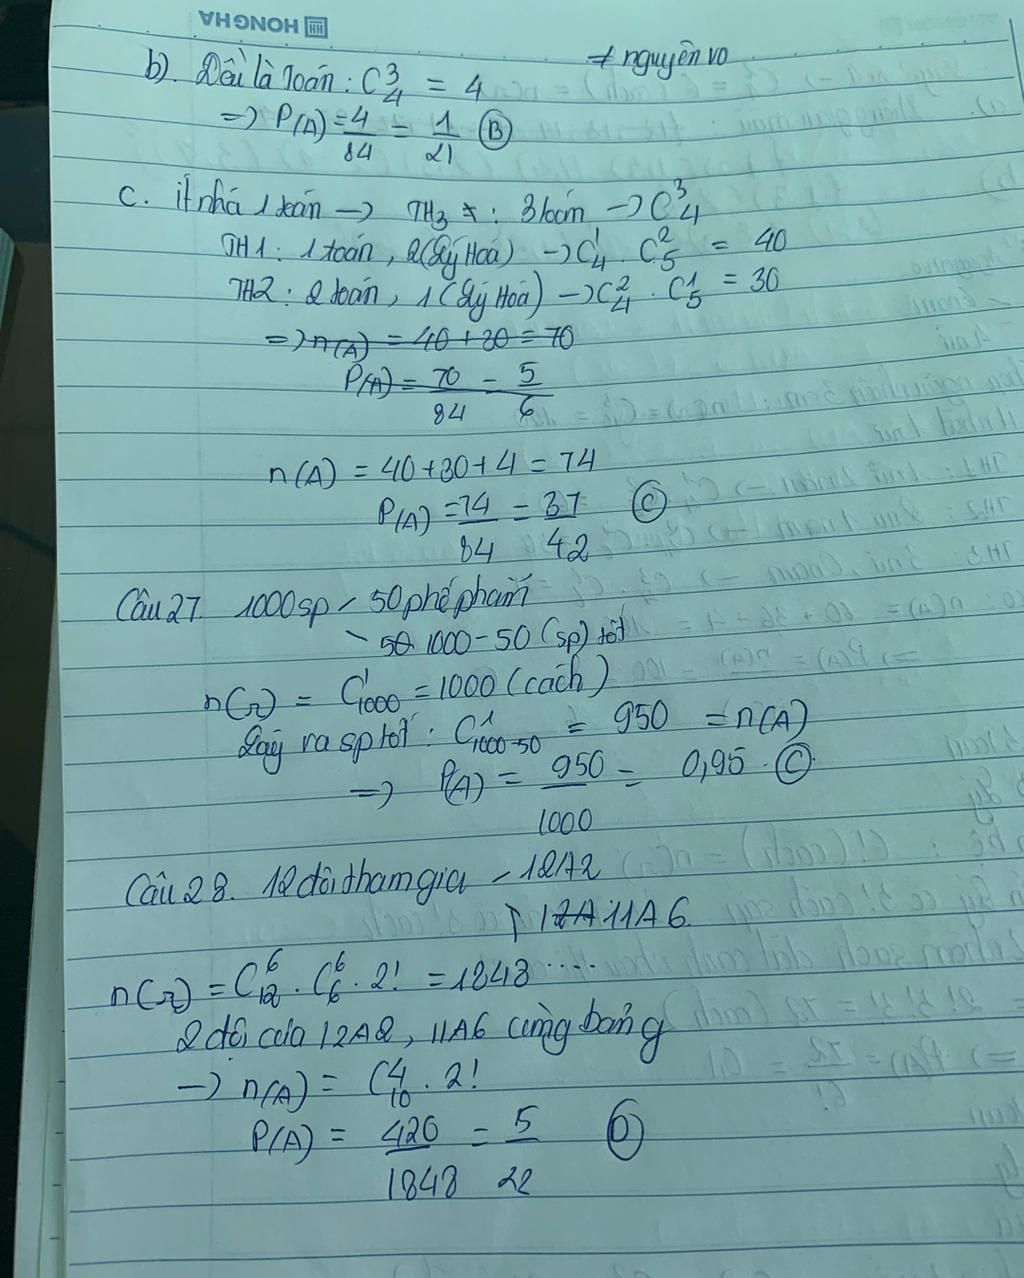 HONG HA
≠ nguyên vo
b). Đều là Toán : C³₄ = 4
=> P(A) = 4/84 = 1/21 (B)
c. ít nhá 1 toán -> TH3 : 3 toán -> C³₄
TH1 : 1 toán, 2 (Lý Hoá) -> C¹₄ . C²₅ = 40
TH2 : 2 toán, 1 (Lý Hoá) -> C²₄ . C¹₅ = 30
=> n(A) = 40+30 = 70
P(A) = 70/84 = 5/6
n(A) = 40+30+4 = 74
P(A) = 74/84 = 37/42 (C)
Câu 27. 1000sp - 50 phế phẩm
- 50 1000 - 50 (sp) tốt
n(Ω) = C¹₁₀₀₀ = 1000 (cách)
Lấy ra sp tốt : C¹₁₀₀₀₋₅₀ = 950 = n(A)
=> P(A) = 950/1000 = 0,95. (C)
Câu 28. 12 đội tham gia - 12A2
12A 11A6.
n(Ω) = C⁶₁₂ . C⁶₆ . 2! = 1848 ....
2 đội của 12A2, 11A6 cùng bảng
-> n(A) = C⁴₁₀ . 2!
P(A) = 420/1848 = 5/22 (D)